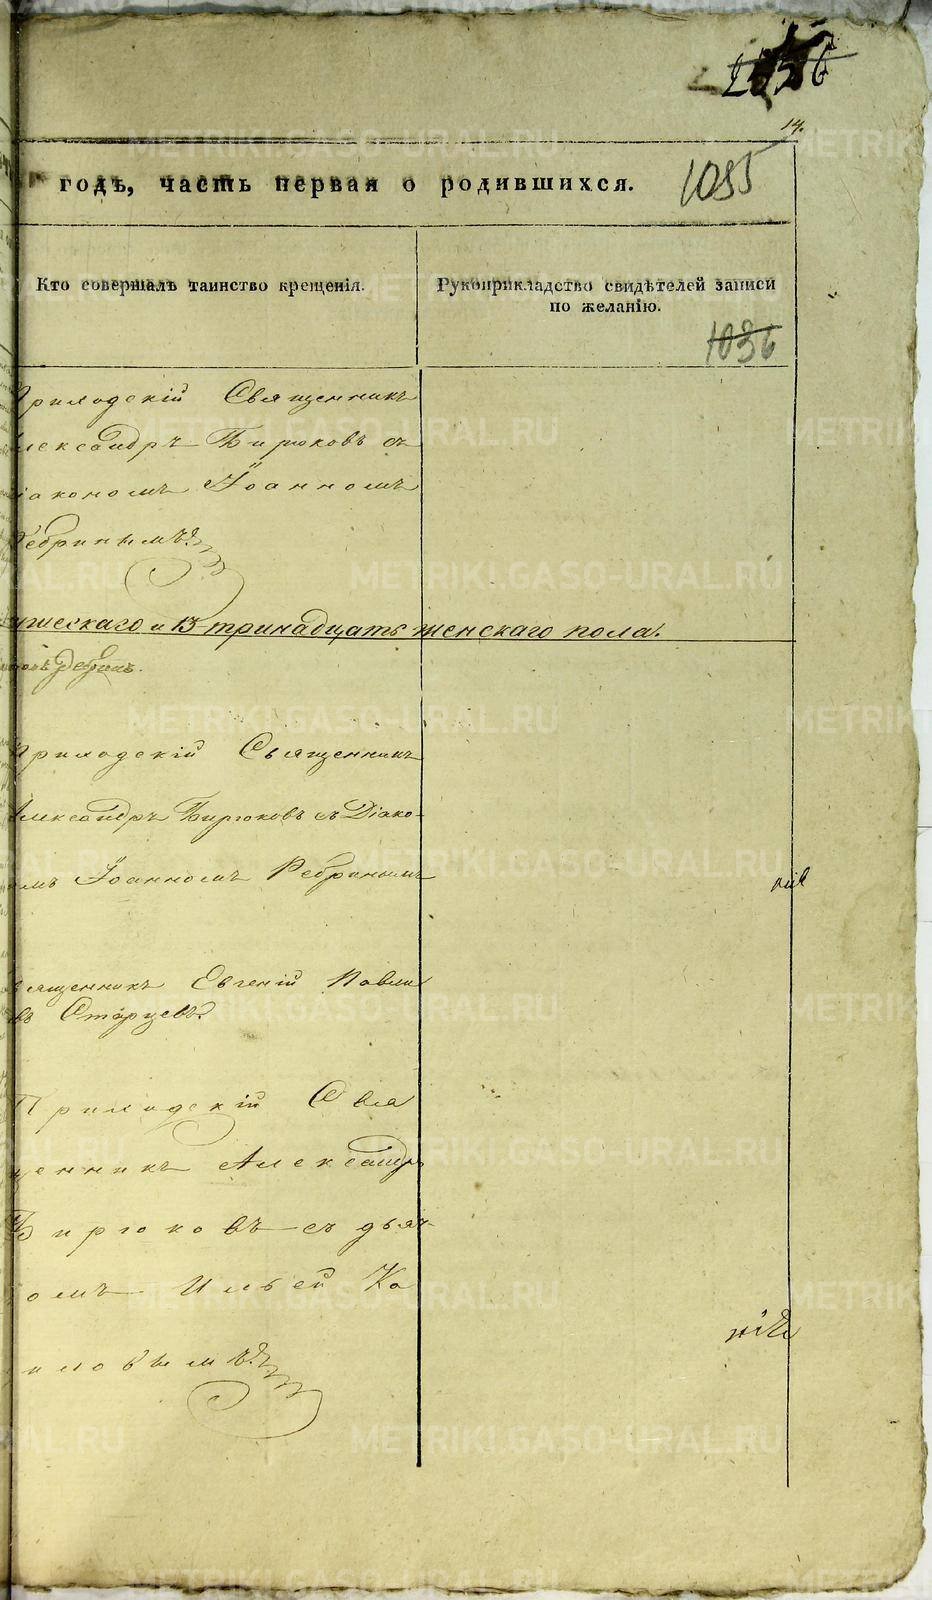 14.
годъ, часть первая о родившихся.
1055
Кто совершалъ таинство крещенія.
Рукоприкладство свидѣтелей записи
по желанію.
1036
Приходскій Священникъ
Александръ Бирюковъ съ
Діакономъ Іоанномъ
Ребринымъ.
мужескаго и 13 тринадцать женскаго пола.
Приходскій Священникъ
Александръ Бирюковъ съ Діако-
мъ Іоанномъ Ребринымъ
Священникъ Евгеній Павли
въ Старцевъ.
Приходскій Свя
щенникъ Александръ
Бирюковъ съ дьяч-
комъ Ильей Ко
иловымъ.
METRIKI.GASO-URAL.RU